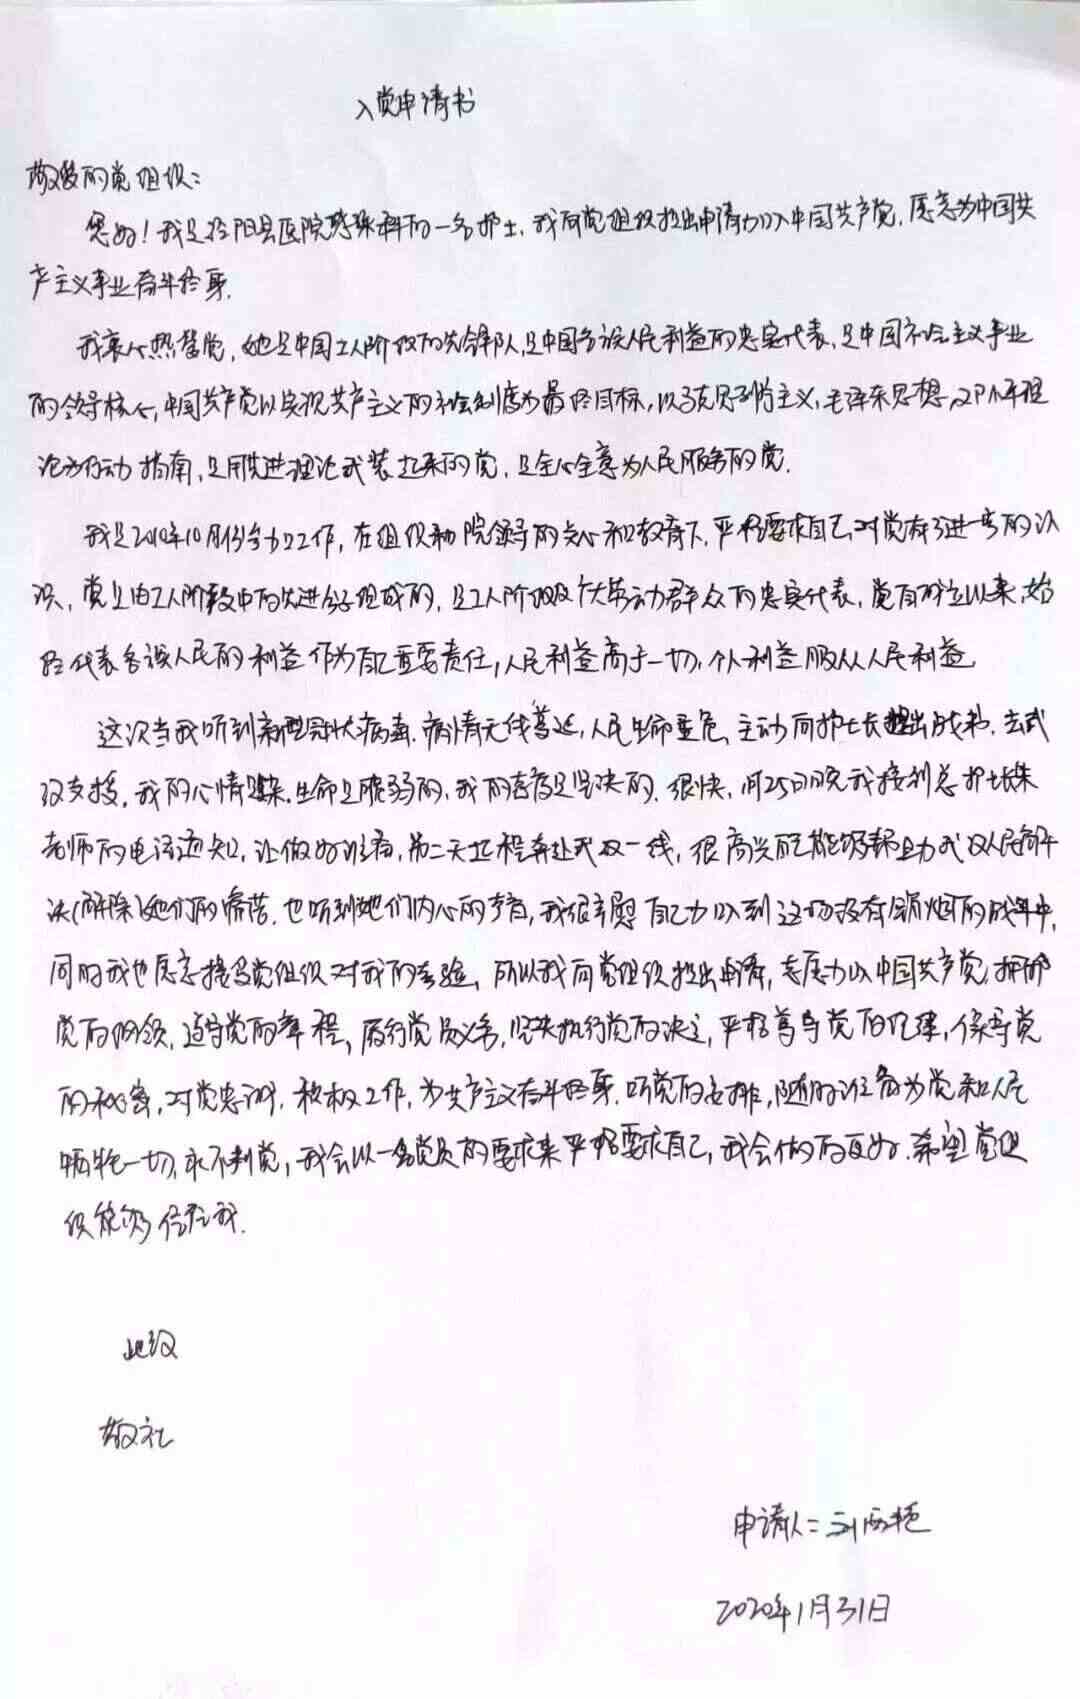 入党申请书
敬爱的党组织:
您好!我是 阳县医院感染科的一名护士,我向党组织提出申请加入中国共产党,愿意为中国共
产主义事业奋斗终身.
我衷心热 党,她是中国工人阶级的先锋队,是中国各族人民利益的忠实代表,是中国社会主义事业
的领导核心,中国共产党以实现共产主义的社会制度为最终目标,以马克思列宁主义,毛泽东思想,邓小平理
论为行动指南,是用先进理论武装起来的党,是全心全意为人民服务的党.
我是2010年10月份参加工作,在组织和院领导的关心和教育下,严格要求自己,对党有了进一步的认
识,党是由工人阶级中的先进分子组成的,是工人阶级及广大劳动群众的忠实代表,党自成立以来,始
终代表各族人民的利益作为自己重要责任,人民利益高于一切,个人利益服从人民利益.
这次当我听到新型冠状病毒.病情无线蔓延,人民生命垂危,主动向护士长提出战 ,去武
汉支援,我的心情 .生命是脆弱的,我的态度是坚决的.很快,1月25日晚我接到总护士长朱
老师的电话通知,让做好准备,第二天启程奔赴武汉一线,很高兴自己能够帮助武汉人民解
决(解除)她们的痛苦.也听到她们内心的声音,我很欣慰自己加入到这场没有硝烟的战争中,
同时我也愿意接受党组织对我的考验,所以我向党组织提出申请,志愿加入中国共产党.拥护
党的纲领,遵守党的章程,履行党员义务,坚决执行党的决定,严格遵守党的纪律,保守党
的秘密,对党忠诚,积极工作,为共产主义奋斗终身.听党的安排,随时准备为党和人民
牺牲一切,永不判党,我会以一名党员的要求来严格要求自己,我会做的更好.希望党组
织能够信任我.
此致
敬礼
申请人:刘
2020年1月31日